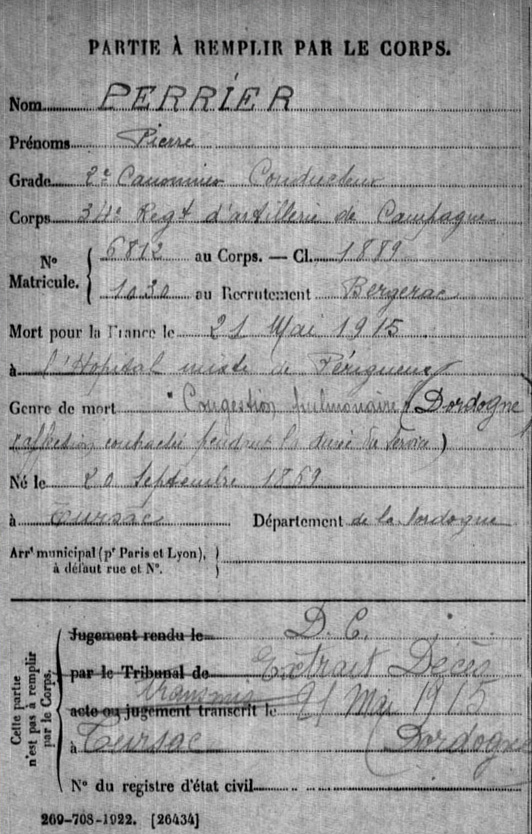 PARTIE À REMPLIR PAR LE CORPS.
Nom PERRIER
Prénoms Pierre
Grade 2e Canonnier Conducteur
Corps 34e Regt d'artillerie de Campagne
No Matricule. 6812 au Corps. — Cl. 1889
1030 au Recrutement Bergerac
Mort pour la France le 21 Mai 1915
à l'Hôpital mixte de Périgueux
Genre de mort Congestion pulmonaire (Dordogne
(affection contractée pendant la durée du service)
Né le 20 Septembre 1869
à Tursac Département de la Dordogne
Arrt municipal (pr Paris et Lyon),
à défaut rue et No.
Cette partie n'est pas à remplir par le Corps.
Jugement rendu le D. C.
par le Tribunal de Extrait Décès
transmis
acte ou jugement transcrit le 21 Mai 1915
à Tursac (Dordogne
No du registre d'état civil
269-708-1922. [26434]